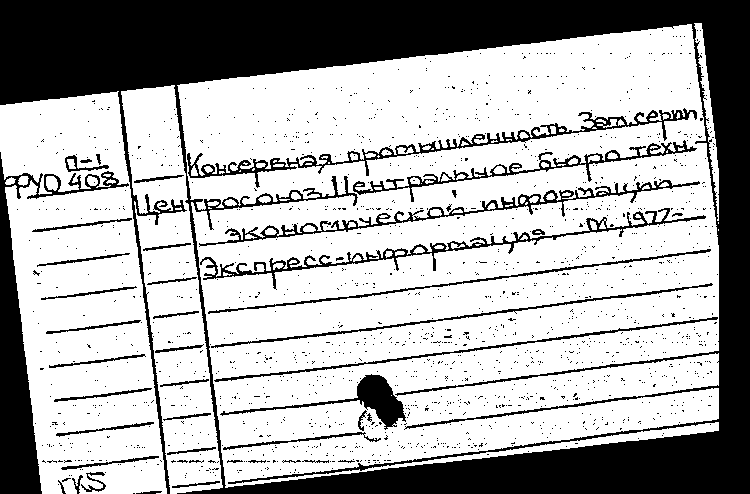 П-1
ФУО 408
Консервная промышленность. Заг. серии.
Центросоюз. Центральное бюро техн.-
экономической информации
Экспресс-информация. М., 1977-
ГКБ